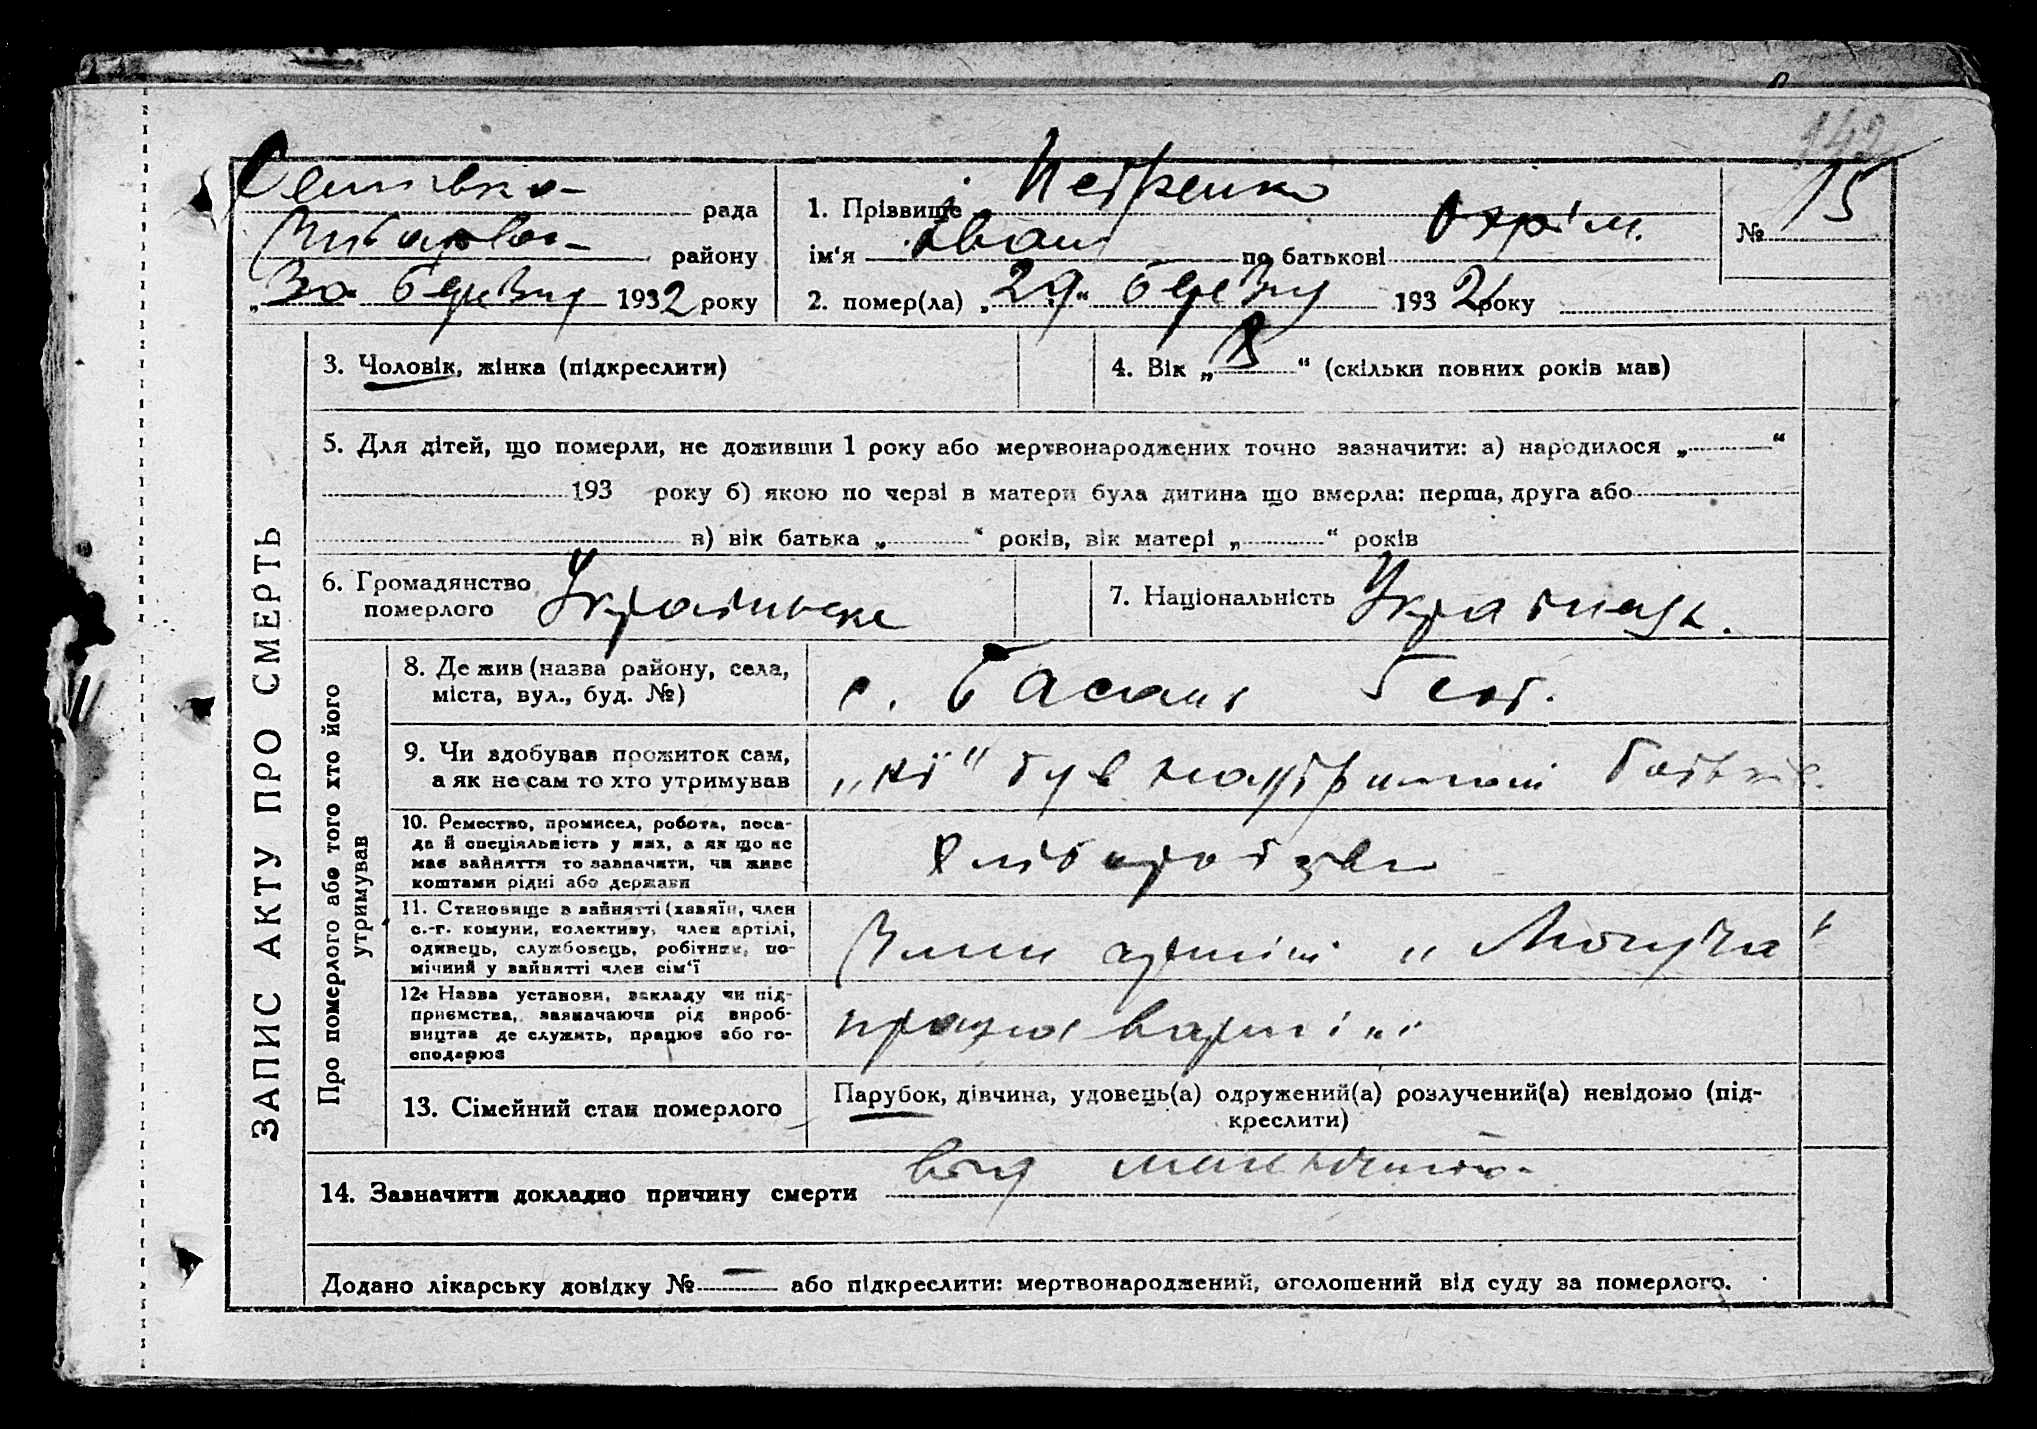 142
рада
району
„30 березня 1932 року
1. Прізвище Петренко
ім'я Іван по батькові Охрім.
№ 15
2. помер(ла) „29“ березня 1932 року
ЗАПИС АКТУ ПРО СМЕРТЬ
3. Чоловік, жінка (підкреслити)
4. Вік „8“ (скільки повних років мав)
5. Для дітей, що померли, не доживши 1 року або мертвонароджених точно зазначити: а) народилося „ “
193 року б) якою по черзі в матери була дитина що вмерла: перша, друга або
в) вік батька „ “ років, вік матері „ “ років
6. Громадянство
померлого Українське
7. Національність Українець.
Про померлого або того хто його
утримував
8. Де жив (назва району, села,
міста, вул., буд. №)
с. Басань
9. Чи здобував прожиток сам,
а як не сам то хто утримував
„ні“ був на утриманні батьків.
10. Ремество, промисел, робота, поса-
да й спеціяльність у них, а як що не
має зайняття то зазначити, чи живе
коштами рідні або держави
Хлібороб
11. Становище в зайнятті (хазяїн, член
с.-г. комуни, колективу, член артілі,
одинець, службовець, робітник, по-
мічний у зайнятті член сім'ї
Член артілі „
12. Назва установи, закладу чи під-
приємства, зазначаючи рід вироб-
ництва де служить, працює або го-
сподарює
працює в артілі
13. Сімейний стан померлого
Парубок, дівчина, удовець(а) одружений(а) розлучений(а) невідомо (під-
креслити)
14. Зазначити докладно причину смерти від
Додано лікарську довідку № — або підкреслити: мертвонароджений, оголошений від суду за померлого.